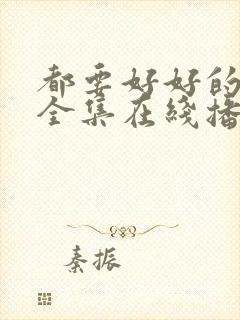 都要好好的
全集在线播
秦振